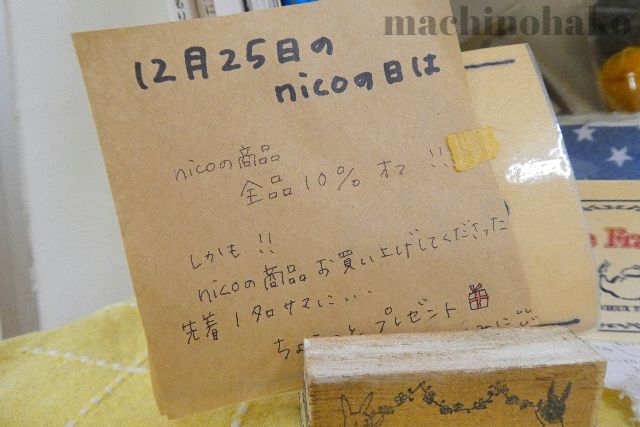 machinohako
12月25日の
nicoの日は
nicoの商品
全品10% オフ !!
しかも !!
nicoの商品お買い上げしてくださった
先着1名サマに...
ちょこっとプレゼント